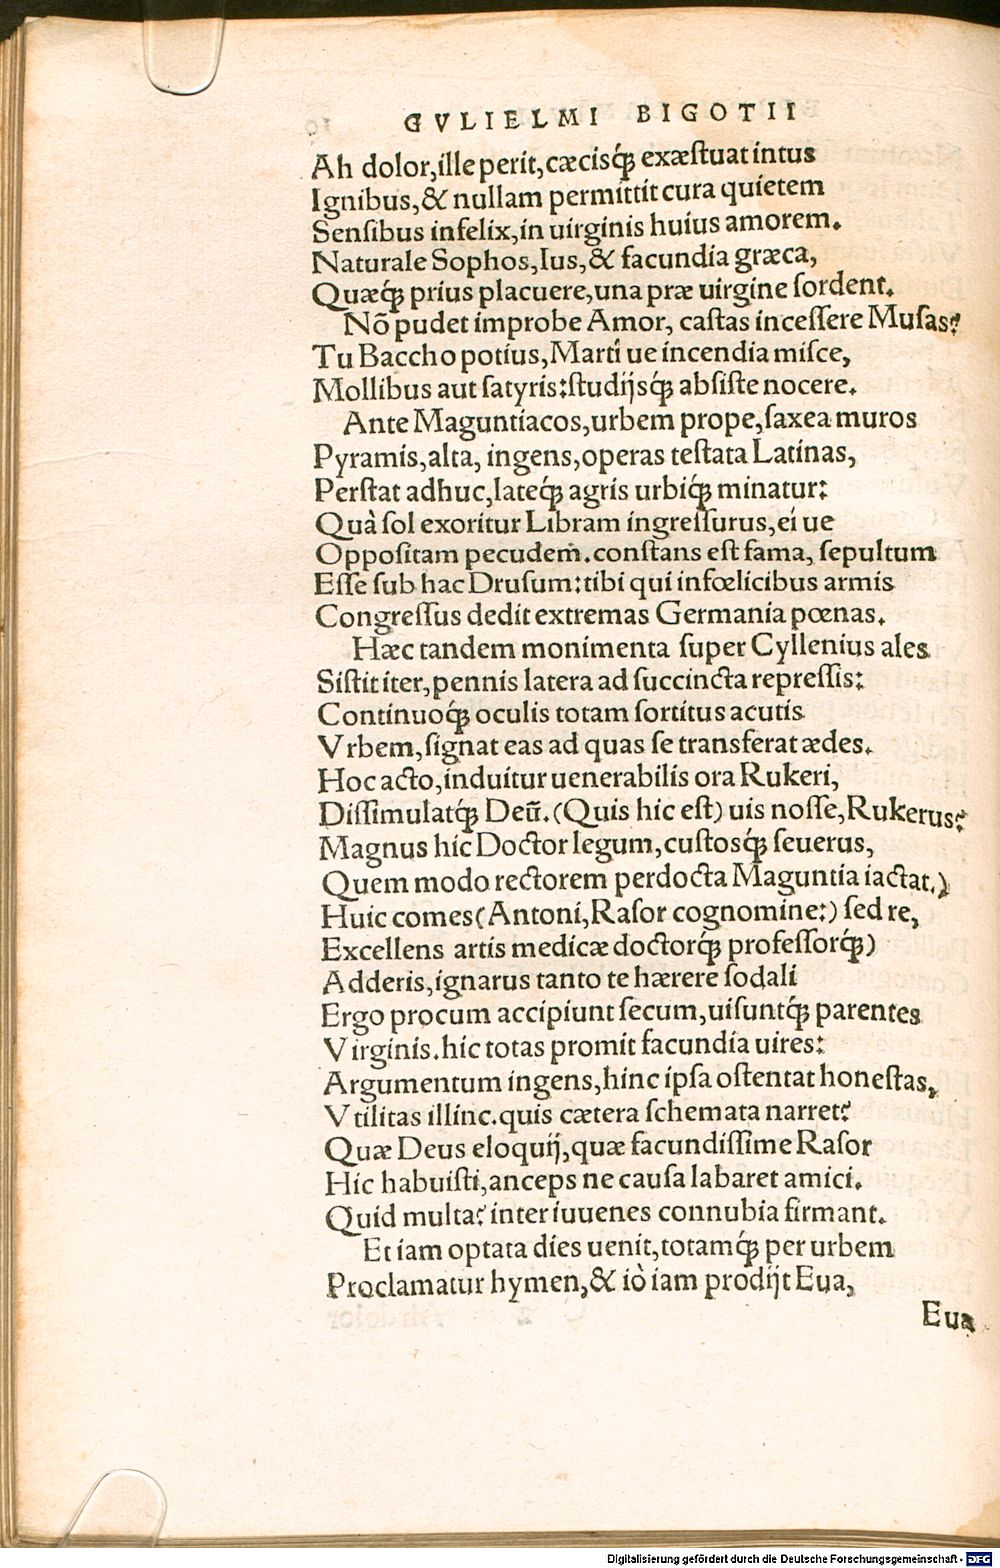 GVLIELMI BIGOTII
Ah dolor, ille perit, cæcisq́ꝫ exæſtuat intus
Ignibus, & nullam permittit cura quietem
Senſibus infelix, in uirginis huius amorem.
Naturale Sophos, Ius, & facundia græca,
Quæq́ꝫ prius placuere, una præ uirgine ſordent.
Nõ pudet improbe Amor, caſtas inceſſere Muſas?
Tu Baccho potius, Marti ue incendia miſce,
Mollibus aut ſatyris: ſtudijsq́ꝫ abſiſte nocere.
Ante Maguntiacos, urbem prope, ſaxea muros
Pyramis, alta, ingens, operas teſtata Latinas,
Perſtat adhuc, lateq́ꝫ agris urbiq́ꝫ minatur:
Quà ſol exoritur Libram ingreſſurus, ei ue
Oppoſitam pecudem̃. conſtans eſt fama, ſepultum
Eſſe ſub hac Druſum: tibi qui infœlicibus armis
Congreſſus dedit extremas Germania pœnas.
Hæc tandem monimenta ſuper Cyllenius ales
Siſtit iter, pennis latera ad ſuccincta repreſſis:
Continuoq́ꝫ oculis totam ſortitus acutis
Vrbem, ſignat eas ad quas ſe transferat ædes.
Hoc acto, induitur uenerabilis ora Rukeri,
Diſſimulatq́ꝫ Deũ. (Quis hic eſt) uis noſſe, Rukerus?
Magnus hic Doctor legum, cuſtosq́ꝫ ſeuerus,
Quem modo rectorem perdocta Maguntia iactat.)
Huic comes (Antoni, Raſor cognomine:) ſed re,
Excellens artis medicæ doctorq́ꝫ profeſſorq́ꝫ)
Adderis, ignarus tanto te hærere ſodali
Ergo procum accipiunt ſecum, uiſuntq́ꝫ parentes
Virginis. hic totas promit facundia uires:
Argumentum ingens, hinc ipſa oſtentat honeſtas,
Vtilitas illinc. quis cætera ſchemata narret?
Quæ Deus eloquij, quæ facundiſſime Raſor
Hic habuiſti, anceps ne cauſa labaret amici.
Quid multa? inter iuuenes connubia firmant.
Et iam optata dies uenit, totamq́ꝫ per urbem
Proclamatur hymen, & iò iam prodijt Eua,
Eua
Digitalisierung gefördert durch die Deutsche Forschungsgemeinschaft - DFG